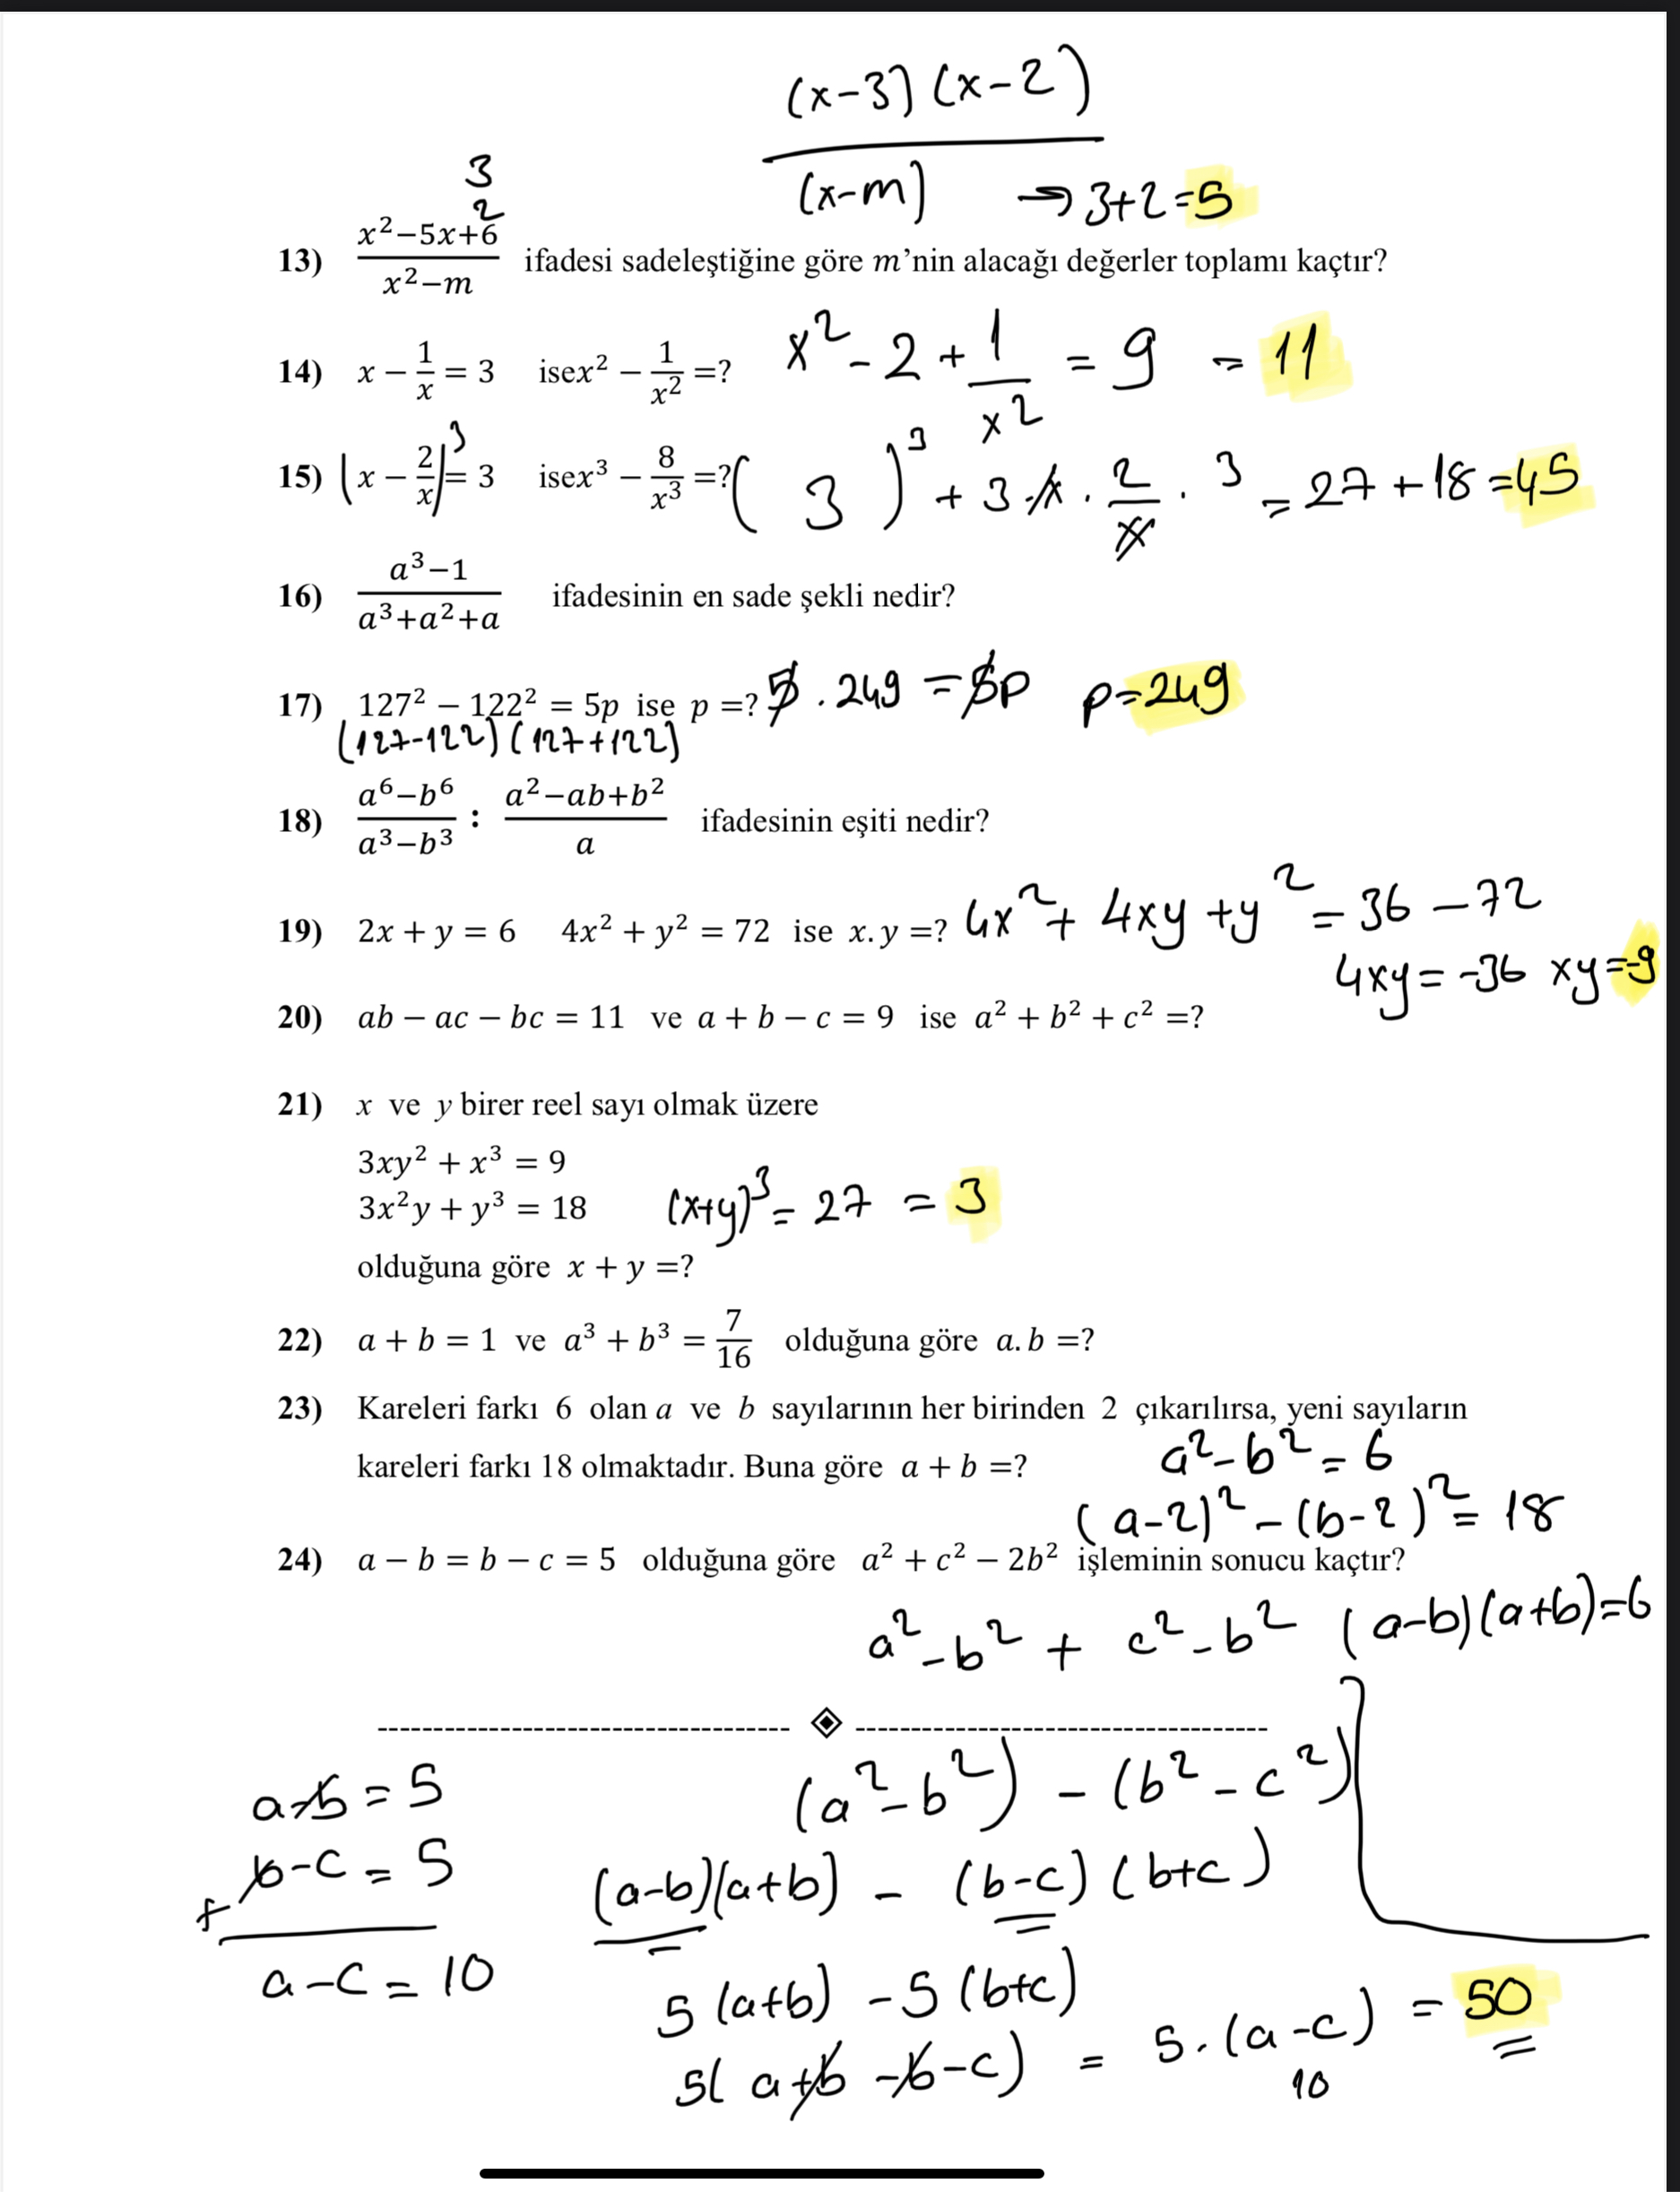 (x-3) (x-2)
(x-m) → 3+2=5
3
2
13) x²−5x+6 / x²−m ifadesi sadeleştiğine göre m'nin alacağı değerler toplamı kaçtır?
14) x − 1/x = 3 isex² − 1/x² =? x² - 2 + 1/x² = 9 = 11
15) (x − 2/x)³ = 3 isex³ − 8/x³ =? (3)³ + 3·x · 2/x · 3 = 27 + 18 = 45
16) a³−1 / a³+a²+a ifadesinin en sade şekli nedir?
17) 127² − 122² = 5p ise p =? 5 . 249 = 5p p=249
(127-122) (127+122)
18) a⁶−b⁶ / a³−b³ : a²−ab+b² / a ifadesinin eşiti nedir?
19) 2x + y = 6 4x² + y² = 72 ise x. y =? 4x² + 4xy + y² = 36 - 72
4xy = -36 xy = -9
20) ab − ac − bc = 11 ve a + b − c = 9 ise a² + b² + c² =?
21) x ve y birer reel sayı olmak üzere
3xy² + x³ = 9
3x²y + y³ = 18 (x+y)³ = 27 = 3
olduğuna göre x + y =?
22) a + b = 1 ve a³ + b³ = 7/16 olduğuna göre a. b =?
23) Kareleri farkı 6 olan a ve b sayılarının her birinden 2 çıkarılırsa, yeni sayıların
kareleri farkı 18 olmaktadır. Buna göre a + b =? a² - b² = 6
(a-2)² - (b-2)² = 18
24) a − b = b − c = 5 olduğuna göre a² + c² − 2b² işleminin sonucu kaçtır?
a² - b² + c² - b² (a-b)(a+b)=6
a-b = 5 (a² - b²) - (b² - c²)
b-c = 5 (a-b)(a+b) - (b-c) (b+c)
+
a-c = 10 5 (a+b) - 5 (b+c)
5( a+b -b-c) = 5. (a-c) = 50
10